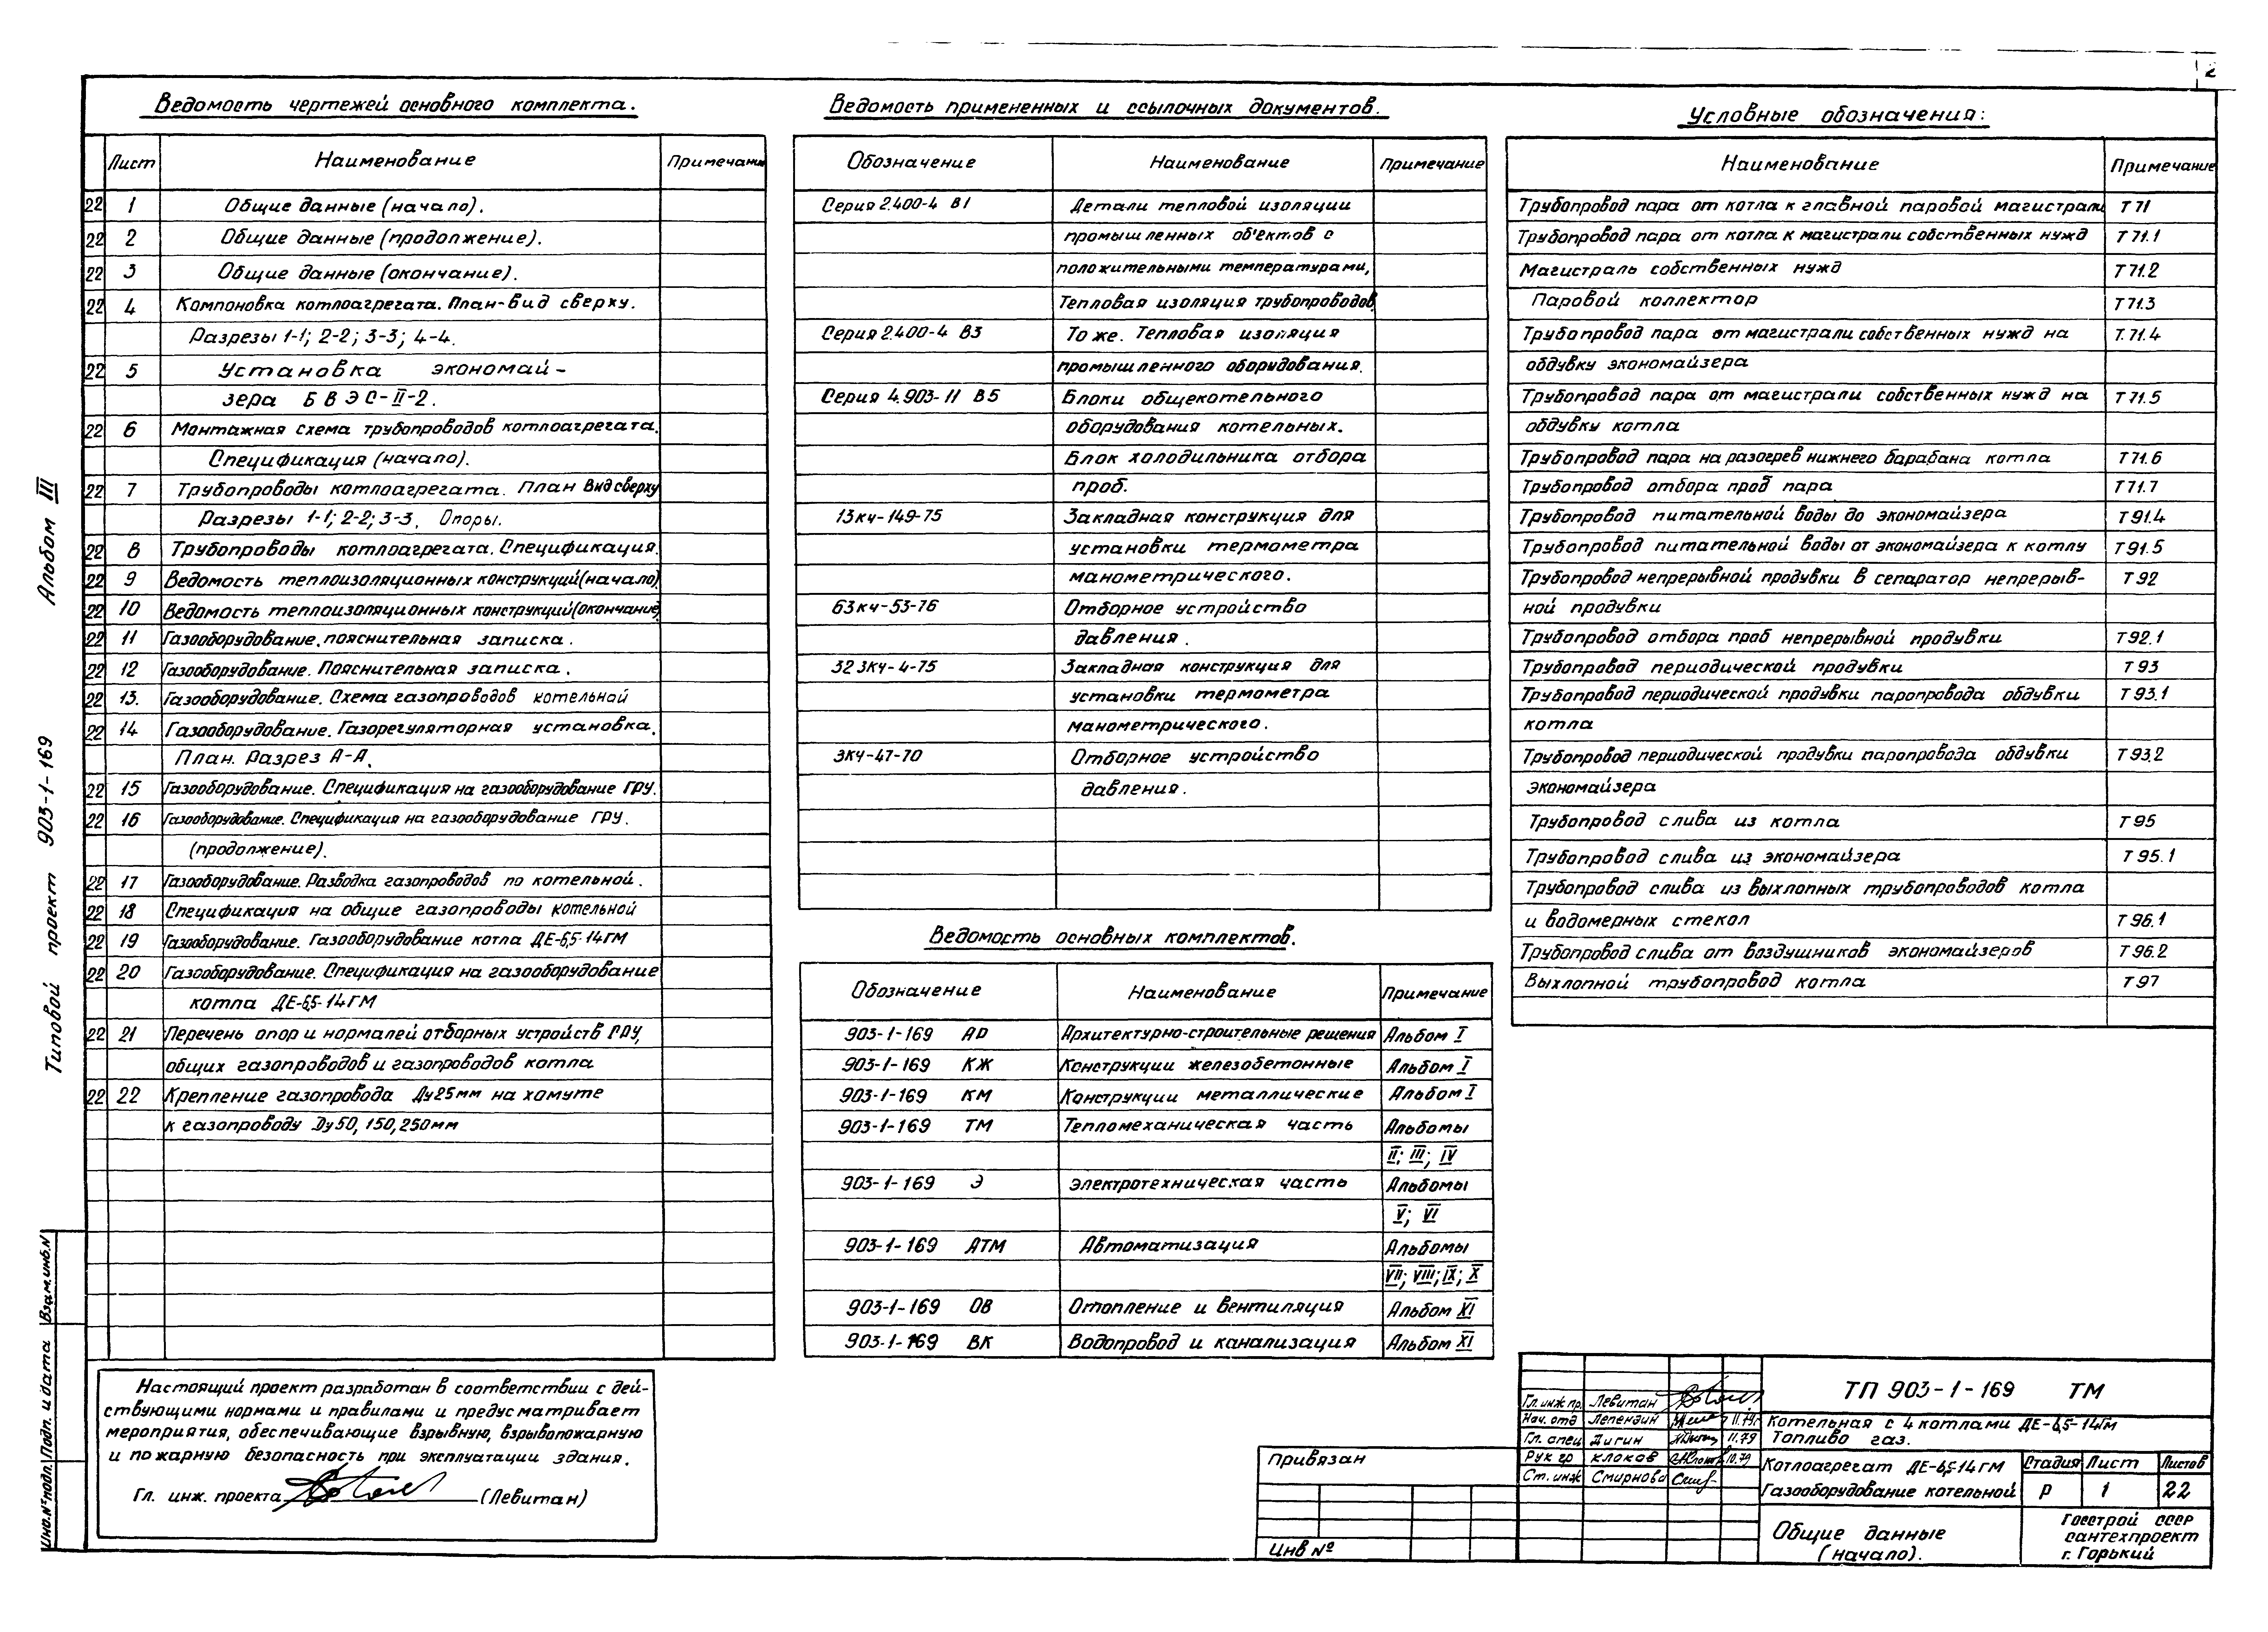 2
Ведомость чертежей основного комплекта.
Лист Наименование Примечание
22 1 Общие данные (начало).
22 2 Общие данные (продолжение).
22 3 Общие данные (окончание).
22 4 Компоновка котлоагрегата. План-вид сверху.
Разрезы 1-1; 2-2; 3-3; 4-4.
22 5 Установка экономай-
зера БВЭС-II-2.
22 6 Монтажная схема трубопроводов котлоагрегата.
Спецификация (начало).
22 7 Трубопроводы котлоагрегата. План вид сверху
Разрезы 1-1; 2-2; 3-3. Опоры.
22 8 Трубопроводы котлоагрегата. Спецификация.
22 9 Ведомость теплоизоляционных конструкций (начало).
22 10 Ведомость теплоизоляционных конструкций (окончание).
22 11 Газооборудование. пояснительная записка.
22 12 Газооборудование. Пояснительная записка.
22 13. Газооборудование. Схема газопроводов котельной
22 14 Газооборудование. Газорегуляторная установка.
План. Разрез А-А.
22 15 Газооборудование. Спецификация на газооборудование ГРУ.
22 16 Газооборудование. Спецификация на газооборудование ГРУ.
(продолжение).
22 17 Газооборудование. Разводка газопроводов по котельной.
22 18 Спецификация на общие газопроводы котельной
22 19 Газооборудование. Газооборудование котла ДЕ-6,5-14ГМ
22 20 Газооборудование. Спецификация на газооборудование
котла ДЕ-6,5-14ГМ
22 21 Перечень опор и нормалей отборных устройств ГРУ,
общих газопроводов и газопроводов котла
22 22 Крепление газопровода Ду25мм на хомуте
к газопроводу Ду50, 150, 250мм
Ведомость примененных и ссылочных документов.
Обозначение Наименование Примечание
Серия 2.400-4 В1 Детали тепловой изоляции
промышленных объектов с
положительными температурами,
Тепловая изоляция трубопроводов.
Серия 2.400-4 В3 То же. Тепловая изоляция
промышленного оборудования.
Серия 4.903-11 В5 Блоки общекотельного
оборудования котельных.
Блок холодильника отбора
проб.
13кч-149-75 Закладная конструкция для
установки термометра
манометрического.
63кч-53-76 Отборное устройство
давления.
323кч-4-75 Закладная конструкция для
установки термометра
манометрического.
3кч-47-70 Отборное устройство
давления.
Ведомость основных комплектов.
Обозначение Наименование Примечание
903-1-169 АР Архитектурно-строительные решения Альбом I
903-1-169 КЖ Конструкции железобетонные Альбом I
903-1-169 КМ Конструкции металлические Альбом I
903-1-169 ТМ Тепломеханическая часть Альбомы
II; III; IV
903-1-169 Э электротехническая часть Альбомы
V; VI
903-1-169 АТМ Автоматизация Альбомы
VII; VIII; IX; X
903-1-169 ОВ Отопление и вентиляция Альбом XI
903-1-169 ВК Водопровод и канализация Альбом XI
Условные обозначения:
Наименование Примечание
Трубопровод пара от котла к главной паровой магистрали Т71
Трубопровод пара от котла к магистрали собственных нужд Т71.1
Магистраль собственных нужд Т71.2
Паровой коллектор Т71.3
Трубопровод пара от магистрали собственных нужд на Т.71.4
обдувку экономайзера
Трубопровод пара от магистрали собственных нужд на Т71.5
обдувку котла
Трубопровод пара на разогрев нижнего барабана котла Т71.6
Трубопровод отбора проб пара Т71.7
Трубопровод питательной воды до экономайзера Т91.4
Трубопровод питательной воды от экономайзера к котлу Т91.5
Трубопровод непрерывной продувки в сепаратор непрерыв- Т92
ной продувки
Трубопровод отбора проб непрерывной продувки Т92.1
Трубопровод периодической продувки Т93
Трубопровод периодической продувки паропровода обдувки Т93.1
котла
Трубопровод периодической продувки паропровода обдувки Т93.2
экономайзера
Трубопровод слива из котла Т95
Трубопровод слива из экономайзера Т95.1
Трубопровод слива из выхлопных трубопроводов котла
и водомерных стекол Т96.1
Трубопровод слива от воздушников экономайзеров Т96.2
Выхлопной трубопровод котла Т97
Настоящий проект разработан в соответствии с дей-
ствующими нормами и правилами и предусматривает
мероприятия, обеспечивающие взрывную, взрывопожарную
и пожарную безопасность при эксплуатации здания.
Гл. инж. проекта (Левитан)
Привязан
Инв №
Гл. инж пр. Левитан
Нач. отд Лепендин 11.79г
Гл. спец Дигин 11.79
Рук гр Клоков 10.79
Ст. инж Смирнова
ТП 903-1-169 ТМ
Котельная с 4 котлами ДЕ-6,5-14ГМ
Топливо газ.
Котлоагрегат ДЕ-6,5-14ГМ
Газооборудование котельной
Стадия Лист Листов
Р 1 22
Общие данные
(начало).
Госстрой СССР
сантехпроект
г. Горький
Типовой проект 903-1-169 Альбом III
Инв.№ подл. Подп. и дата Взам.инв.N